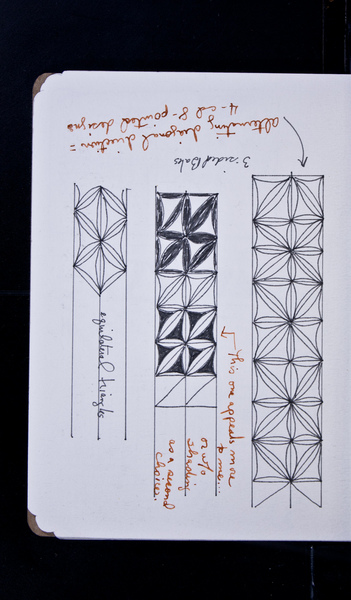 alternating diagonal direction =
4- and 8-pointed designs
3-sided Bales
equilateral triangles
↳ This one appeals more
to me...
or w/o
shading
as a second
choice.